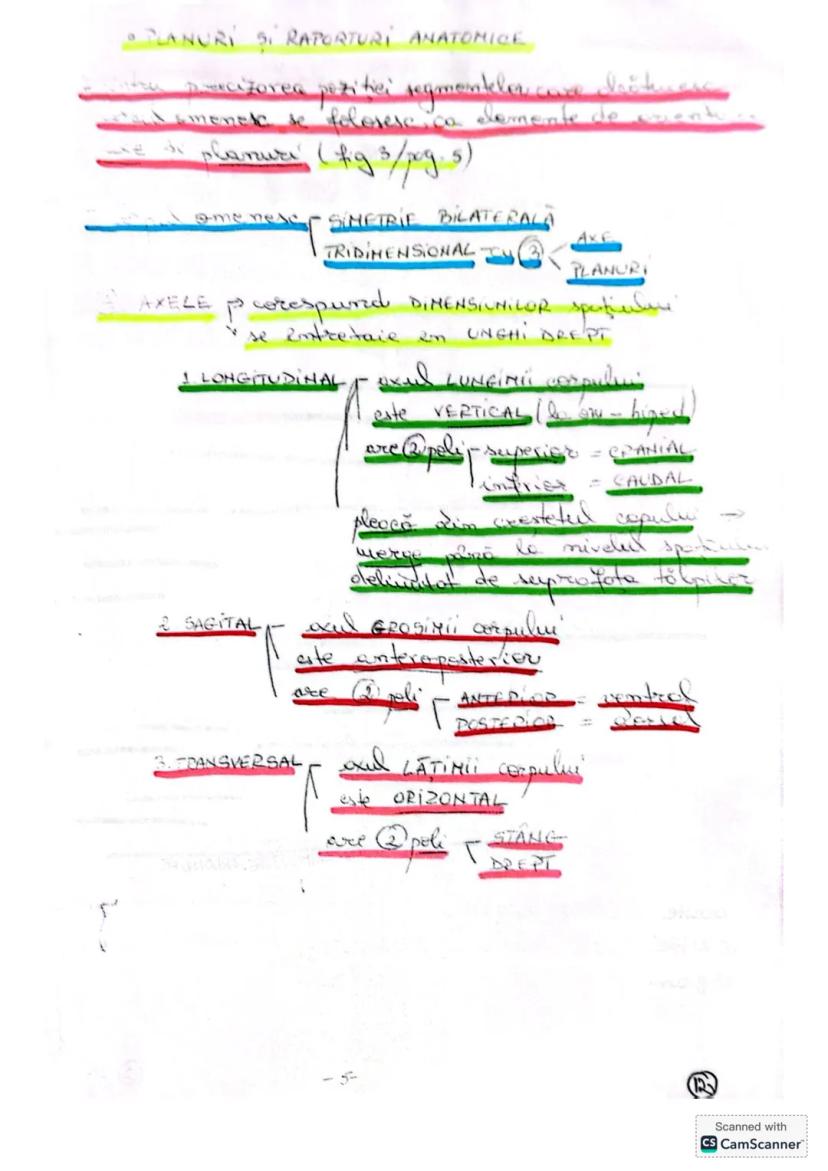 • PLANURI ȘI RAPORTURI ANATOMICE
precizarea poziției segmentelor care alcătuiesc
omenesc se folosesc, ca elemente de
și planuri (fig 3/pag. 5)
omenesc SIMETRIE BILATERALĂ
TRIDIMENSIONAL ÎN 3 AXE
PLANURI
AXELE corespund DIMENSIUNILOR spațiului
se întretaie în UNGHI DREPT
1. LONGITUDINAL axul LUNGIMII corpului
este VERTICAL (la om - biped)
are 2 poli superior = CRANIAL
inferior = CAUDAL
pleacă din creștetul capului →
merge până la nivelul spațiului
delimitat de suprafața tălpilor
2. SAGITAL axul GROSIMII corpului
este anteroposterior
are 2 poli ANTERIOR = ventral
POSTERIOR = dorsal
3. TRANSVERSAL axul LĂȚIMII corpului
este ORIZONTAL
are 2 poli STÂNG
DREPT
- 5 -
12
Scanned with
CS CamScanner